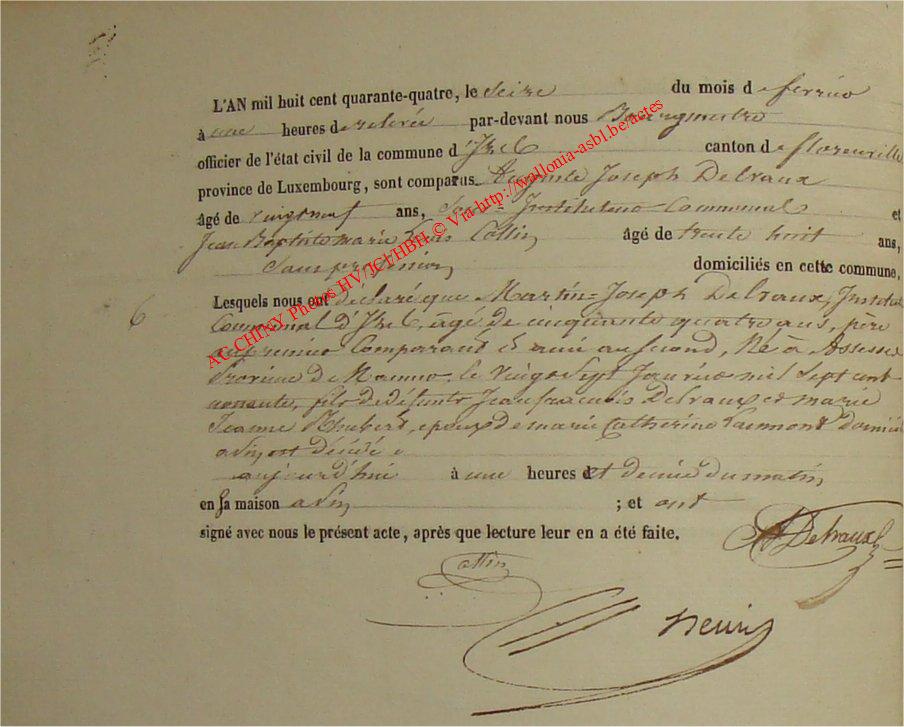 L'AN mil huit cent quarante-quatre, le Seize du mois de fevrier
à une heures de relevée par-devant nous Bourgmestre
officier de l'état civil de la commune d'Izel canton de florenville
province de Luxembourg, sont comparus Auguste Joseph Delvaux
âgé de vingt neuf ans, Sous-Instituteur Communal et
Jean Baptiste marie Louis Collin âgé de trente huit ans,
Sans profession domiciliés en cette commune,
Lesquels nous ont déclaré que Martin-Joseph Delvaux, Institut
6
Communal d'Izel, âgé de cinquante quatre ans, père
au premier Comparant et ami au second, Né à Assesse
Province de Namur le vingt Sept Janvier mil Sept cent
nonante, fils de défunts Jean francois Delvaux et marie
Jeanne Hubert, epoux de marie Catherine Laimont domicil
est décédé
aujourd'hui à une heures et demie du matin
en sa maison ; et ont
signé avec nous le présent acte, après que lecture leur en a été faite.
A Delvaux
Collin
henin
AC CHINY Photos HV/JCJ/HBH © Via http://wallonia-asbl.be/actes